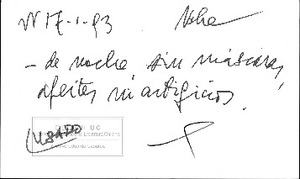 17-1-93 Noche
- de noche sin máscaras,
afeites ni artificios.
USADO
UC